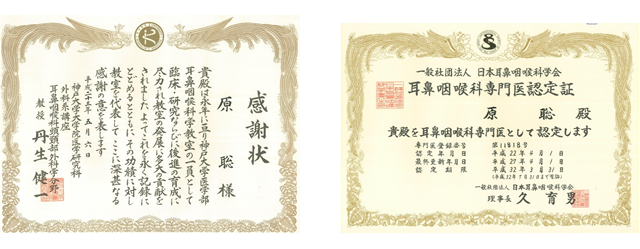 感謝状
原 聡 様
貴殿は永年に亘り神戸大学医学部
耳鼻咽喉科学教室の一員として
臨床・研究ならびに後進の育成に
尽力され教室の発展に多大な貢献を
されましたよってこれを永く記録に
とどめるとともにその功績に対し
教室を代表してここに深甚なる
感謝の意を表します
平成二十五年五月六日
神戸大学大学院医学研究科
外科系講座
耳鼻咽喉科頭頸部外科学分野
教授 丹生健一
一般社団法人 日本耳鼻咽喉科学会
耳鼻咽喉科専門医認定証
原 聡 殿
貴殿を耳鼻咽喉科専門医として認定します
専門医登録番号 第11818号
認定年月日 平成22年4月1日
最終更新年月日 平成27年4月1日
認定期限 平成32年3月31日
一般社団法人 日本耳鼻咽喉科学会
理事長 久 育男